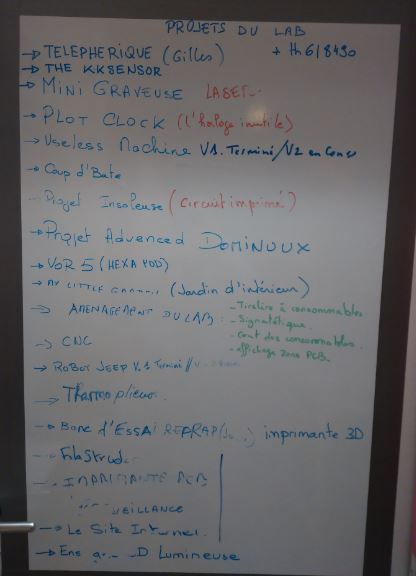 PROJETS DU LAB
→ TELEPHERIQUE (Gilles) + th618490
→ THE KKSENSOR
→ MINI GRAVEUSE LASER
→ PLOT CLOCK (l'horloge inutile)
→ Useless Machine V1. Terminé/V2 en cours
→ Coup d'Bute
Projet Insoleuse (circuit imprimé)
→ Projet Advenced DOMINUUX
→ VOR 5 (HEXA POD)
→ MY LITTLE (Jardin d'intérieur)
→ AMENAGEMENT DU LAB :
- Tirelire à consommables
- Signalétique.
- Cout des consommables.
- affichage zone PCB.
→ CNC
→ ROBOT JEEP V.1 Terminé //
→ Thermoplieur
→ Banc d'Essai REPRAP imprimante 3D
FilaStruder
IMPRIMANTE PCB
VEILLANCE
→ Le Site Internet.
→ Lumineuse